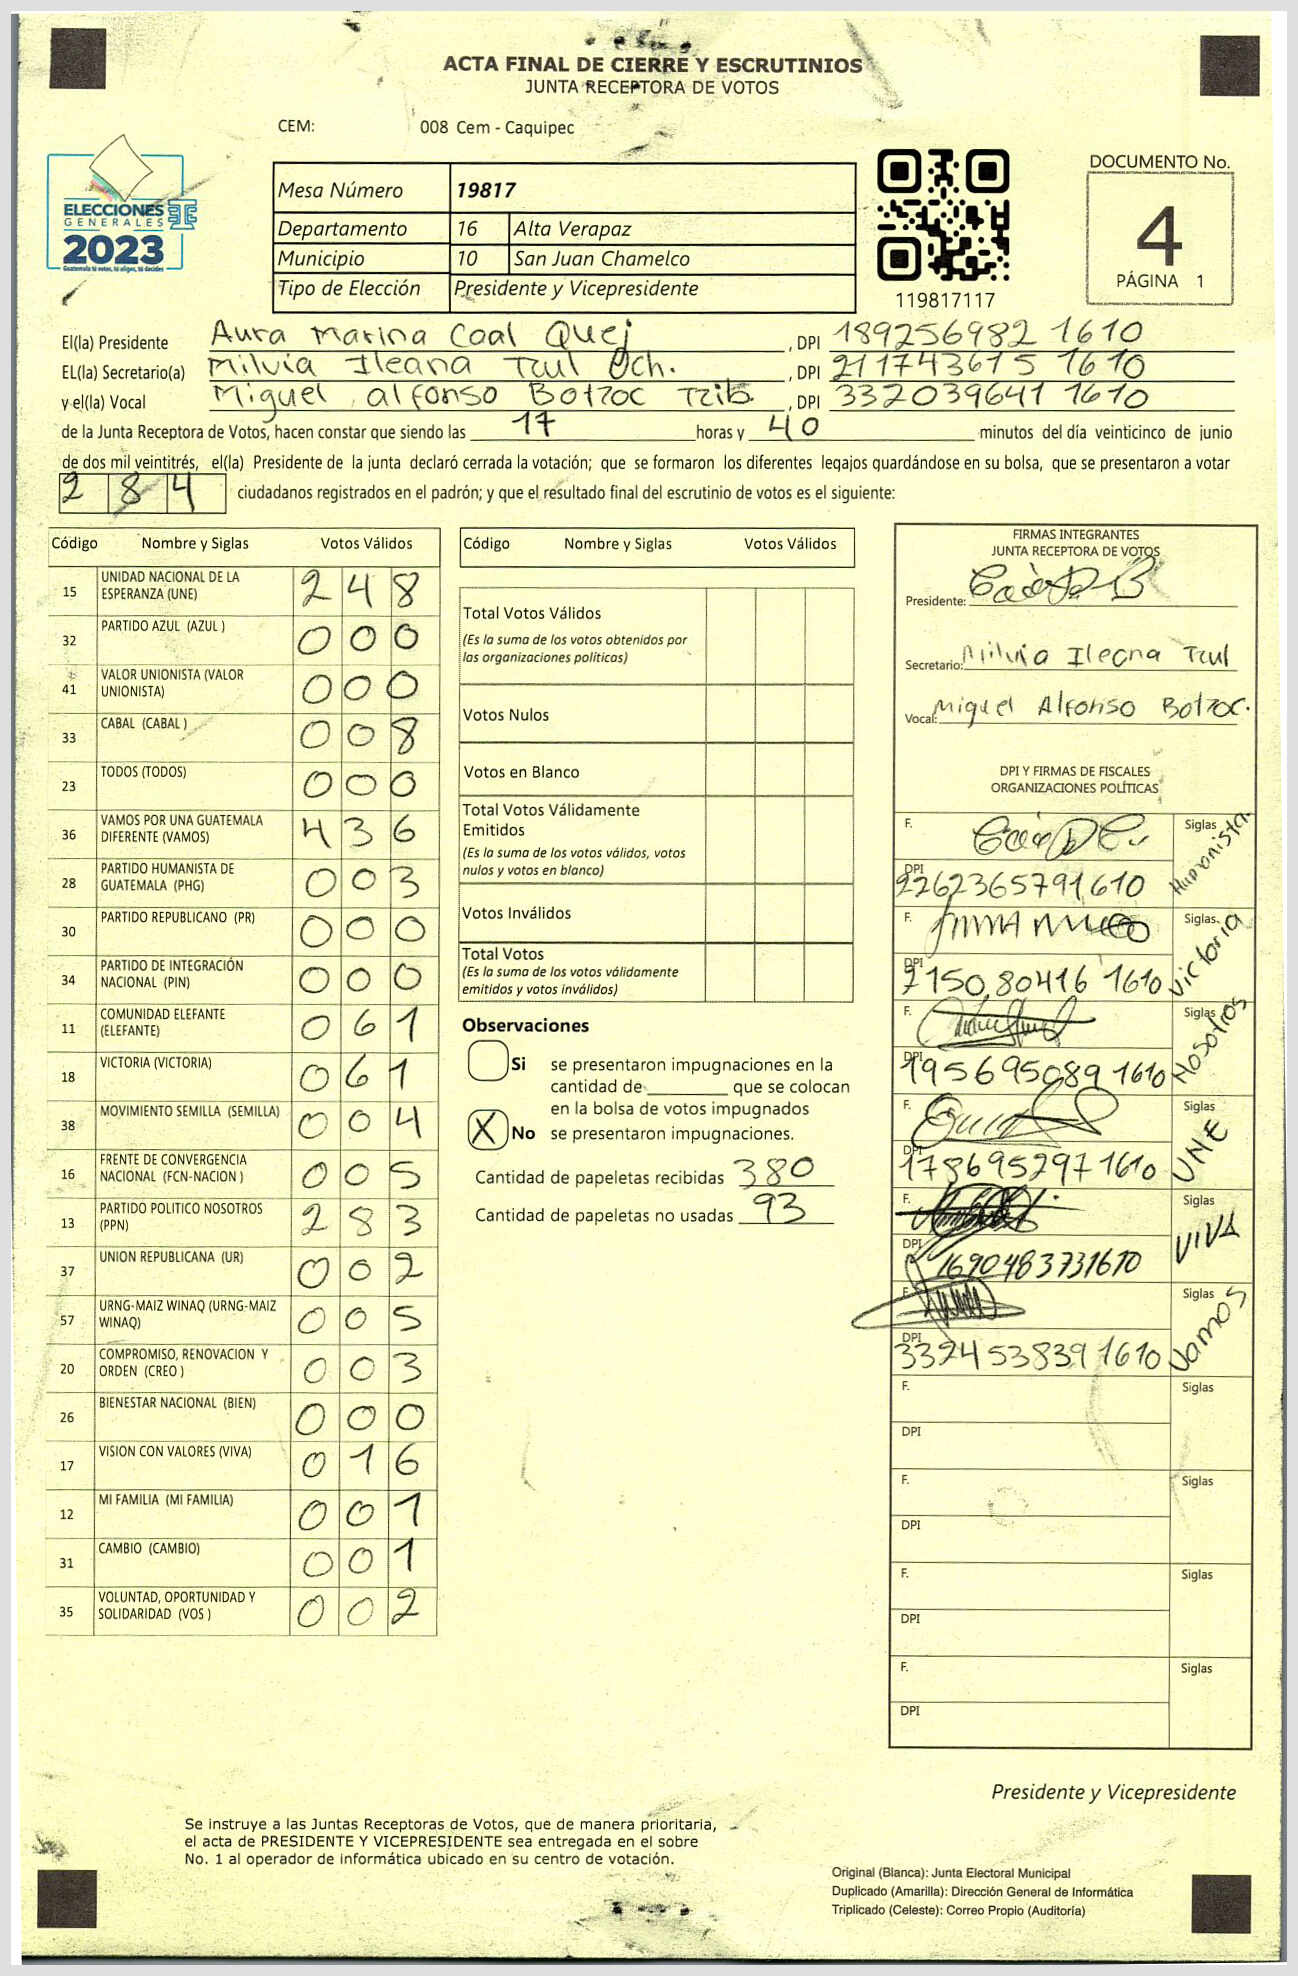 ACTA FINAL DE CIERRE Y ESCRUTINIOS
JUNTA RECEPTORA DE VOTOS
CEM: 008 Cem - Caquipec
ELECCIONES
GENERALES
2023
Guatemala tú votas, tú eliges, tú decides
Mesa Número 19817
Departamento 16 Alta Verapaz
Municipio 10 San Juan Chamelco
Tipo de Elección Presidente y Vicepresidente
119817117
DOCUMENTO No.
4
PÁGINA 1
El(la) Presidente Aura Marina Caal Quej, DPI 189256982 1610
EL(la) Secretario(a) Milvia Ileana Tzul Och., DPI 211743615 1610
y el(la) Vocal Miguel alfonso Botzoc Tzib., DPI 332039641 1610
de la Junta Receptora de Votos, hacen constar que siendo las 17 horas y 40 minutos del día veinticinco de junio
de dos mil veintitrés, el(la) Presidente de la junta declaró cerrada la votación; que se formaron los diferentes legajos guardándose en su bolsa, que se presentaron a votar
284 ciudadanos registrados en el padrón; y que el resultado final del escrutinio de votos es el siguiente:
Código Nombre y Siglas Votos Válidos
15 UNIDAD NACIONAL DE LA ESPERANZA (UNE) 248
32 PARTIDO AZUL (AZUL ) 000
41 VALOR UNIONISTA (VALOR UNIONISTA) 000
33 CABAL (CABAL ) 008
23 TODOS (TODOS) 000
36 VAMOS POR UNA GUATEMALA DIFERENTE (VAMOS) 436
28 PARTIDO HUMANISTA DE GUATEMALA (PHG) 003
30 PARTIDO REPUBLICANO (PR) 000
34 PARTIDO DE INTEGRACIÓN NACIONAL (PIN) 000
11 COMUNIDAD ELEFANTE (ELEFANTE) 061
18 VICTORIA (VICTORIA) 061
38 MOVIMIENTO SEMILLA (SEMILLA) 004
16 FRENTE DE CONVERGENCIA NACIONAL (FCN-NACION ) 005
13 PARTIDO POLITICO NOSOTROS (PPN) 283
37 UNION REPUBLICANA (UR) 002
57 URNG-MAIZ WINAQ (URNG-MAIZ WINAQ) 005
20 COMPROMISO, RENOVACION Y ORDEN (CREO ) 003
26 BIENESTAR NACIONAL (BIEN) 000
17 VISION CON VALORES (VIVA) 016
12 MI FAMILIA (MI FAMILIA) 001
31 CAMBIO (CAMBIO) 001
35 VOLUNTAD, OPORTUNIDAD Y SOLIDARIDAD (VOS ) 002
Código Nombre y Siglas Votos Válidos
Total Votos Válidos
(Es la suma de los votos obtenidos por
las organizaciones políticas)
Votos Nulos
Votos en Blanco
Total Votos Válidamente
Emitidos
(Es la suma de los votos válidos, votos
nulos y votos en blanco)
Votos Inválidos
Total Votos
(Es la suma de los votos válidamente
emitidos y votos inválidos)
Observaciones
Si se presentaron impugnaciones en la
cantidad de ________ que se colocan
en la bolsa de votos impugnados
X No se presentaron impugnaciones.
Cantidad de papeletas recibidas 380
Cantidad de papeletas no usadas 93
FIRMAS INTEGRANTES
JUNTA RECEPTORA DE VOTOS
Presidente:
Secretario: Milvia Ileana Tzul
Vocal: Miguel Alfonso Botzoc.
DPI Y FIRMAS DE FISCALES
ORGANIZACIONES POLÍTICAS
F. Siglas Humanista
DPI 2262365791610
F. Siglas Victoria
DPI 2150,80416 1610
F. Siglas Nosotros
DPI 195695089 1610
F. Siglas UNE
DPI 178695297 1610
F. Siglas VIVA
DPI 1690483731610
F. Siglas Vamos
DPI 332453839 1610
F. Siglas
DPI
F. Siglas
DPI
F. Siglas
DPI
F. Siglas
DPI
Presidente y Vicepresidente
Se instruye a las Juntas Receptoras de Votos, que de manera prioritaria,
el acta de PRESIDENTE Y VICEPRESIDENTE sea entregada en el sobre
No. 1 al operador de informática ubicado en su centro de votación.
Original (Blanca): Junta Electoral Municipal
Duplicado (Amarilla): Dirección General de Informática
Triplicado (Celeste): Correo Propio (Auditoría)